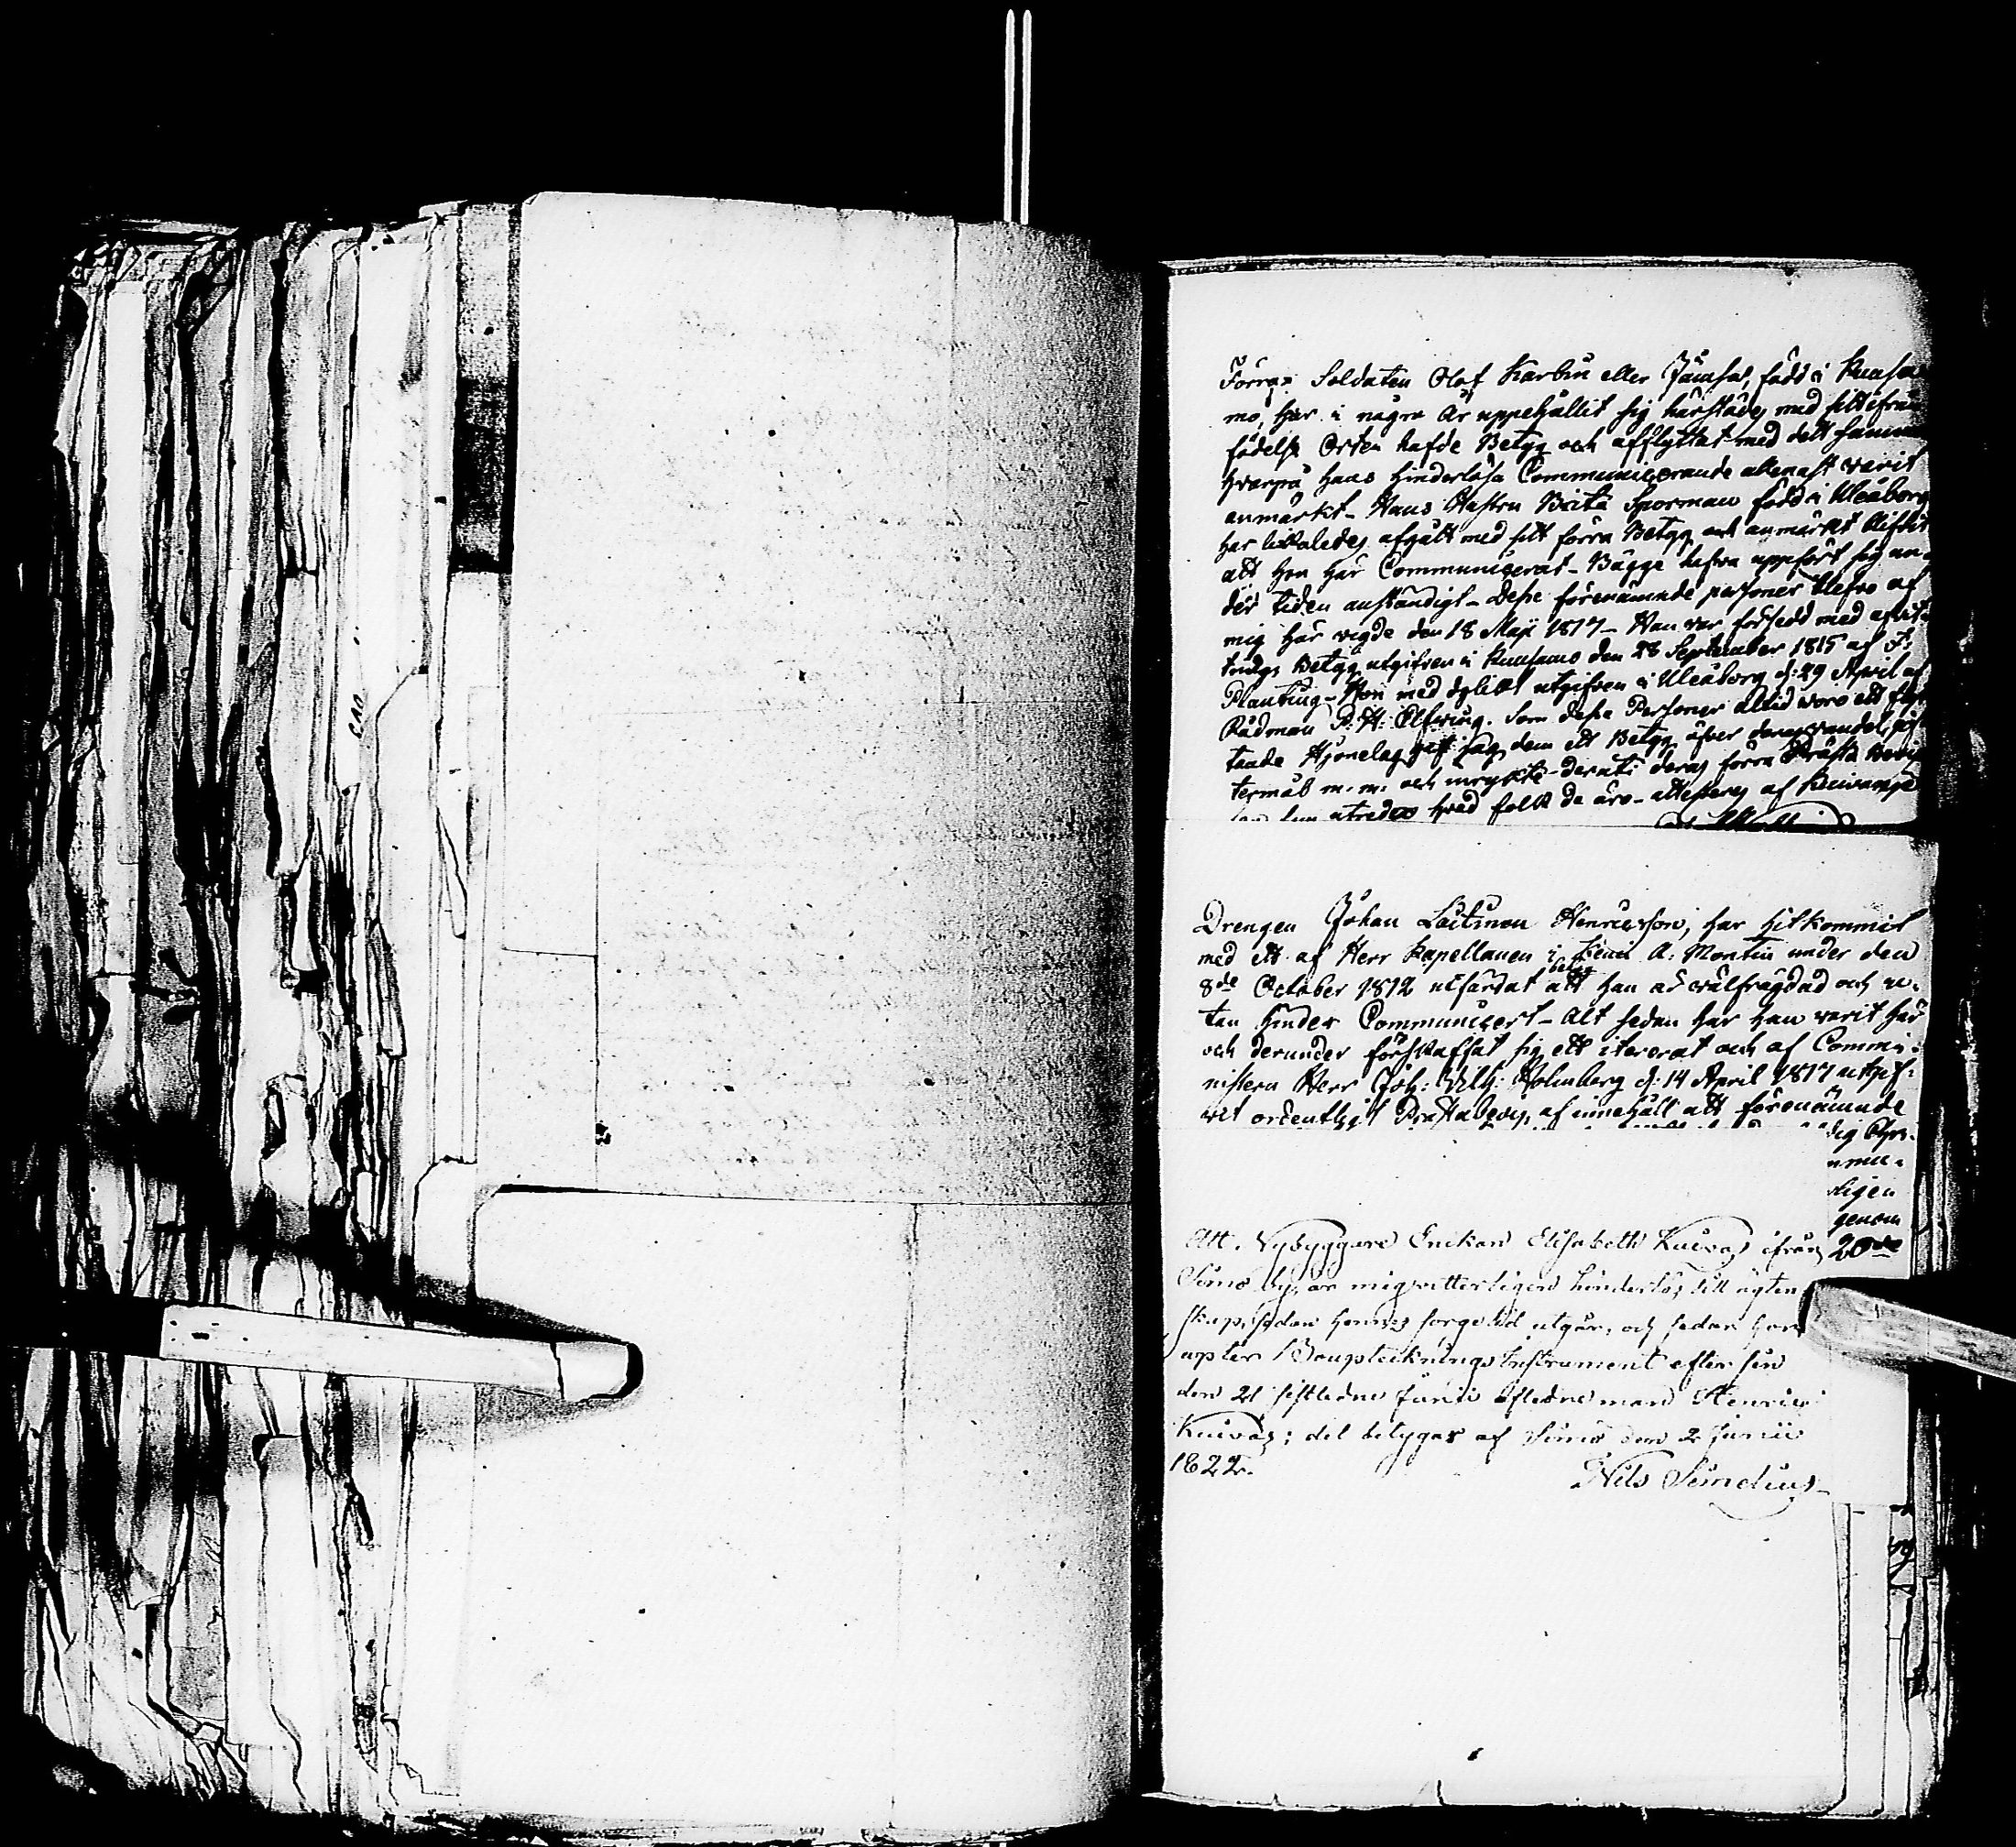 Förra Soldaten Olof Karbin eller Jämsä, född i Kuusa
mo, har i några År uppehållit sig härstädes med sitt ifrån
födelse Orten hafde Betyg och afflyttat med dett samma
hvarpå hans hinderlösa Communicerande allenast varit
anmärkt - Hans Hustru Brita Sporman född i Uleåborg
har likaledes afgått med sitt förra Betyg och anmärkt blifvit
att hon här Communicerat - Bägge hafva uppfört sig un-
der tiden anständigt - Desse förenämnde personer blefvo af
mig här vigde den 18 Maji 1817 - Han var försedd med
Betyg utgifven i Kuusamo den 28 September 1815 af
Planting - Hon med dylikt utgifven i Uleåborg d: 29 April af
Rådman P. H. Elfving. Som desse Personer altid voro ett
Hjonelag gaf jag dem ett Betyg öfver deras vandel,
m. m. och inryckte deruti deras förra Prästa
utredes hvad folk de äro - attesteras af Kuivaniemi
Drengen Johan Laitinen Henricsson, har hitkommit
med ett af Herr Kapellanen i Kemi A. Montin under den
8de October 1812 utfärdat betyg att han är välfrägdad och u-
tan hinder Communicert - Alt sedan har han varit här
och derunder förskaffat sig ett itererat och af Commi-
nistern Herr Joh: Vilh: Holmberg d: 14 April 1817 utgif-
vet ordentligt Prästabevis, af innehåll att förenämnde
dig Chri-
mmu-
ligen
genom
20de
Att Nybyggare Enckan Elisabeth Kuivas ifrån
Simo by, är mig vitterligen hinderlös till ägten
skap, sedan hennes sorgetid utgår, och sedan hon
Bouptecknings Instrument efter sin
den 21 sistledne Junii afledne man Henric
Kuivas; det betygas af Simo den 2 Junii
1822.
Nils Simelius